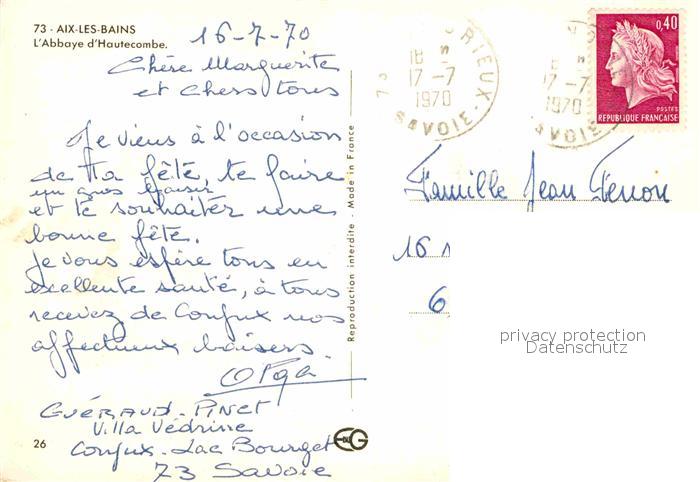 73 - AIX-LES-BAINS
L'Abbaye d'Hautecombe.
16-7-70
Chère Marguerite
et Chers tous
Je viens à l'occasion
de ta fête, te faire
un gros baiser
et te souhaiter une
bonne fête.
Je vous espère tous en
excellente santé, à tous
recevez de Conjux nos
affectueux baisers.
Olga
GUÉRAUD-PINET
Villa Védrine
Conjux - Lac Bourget
73 Savoie
26
Reproduction interdite - Made in France
RIEUX
17-7
1970
SAVOIE
17-7
1970
0,40
POSTES
REPUBLIQUE FRANÇAISE
Famille Jean Fenon
16
6
privacy protection
Datenschutz